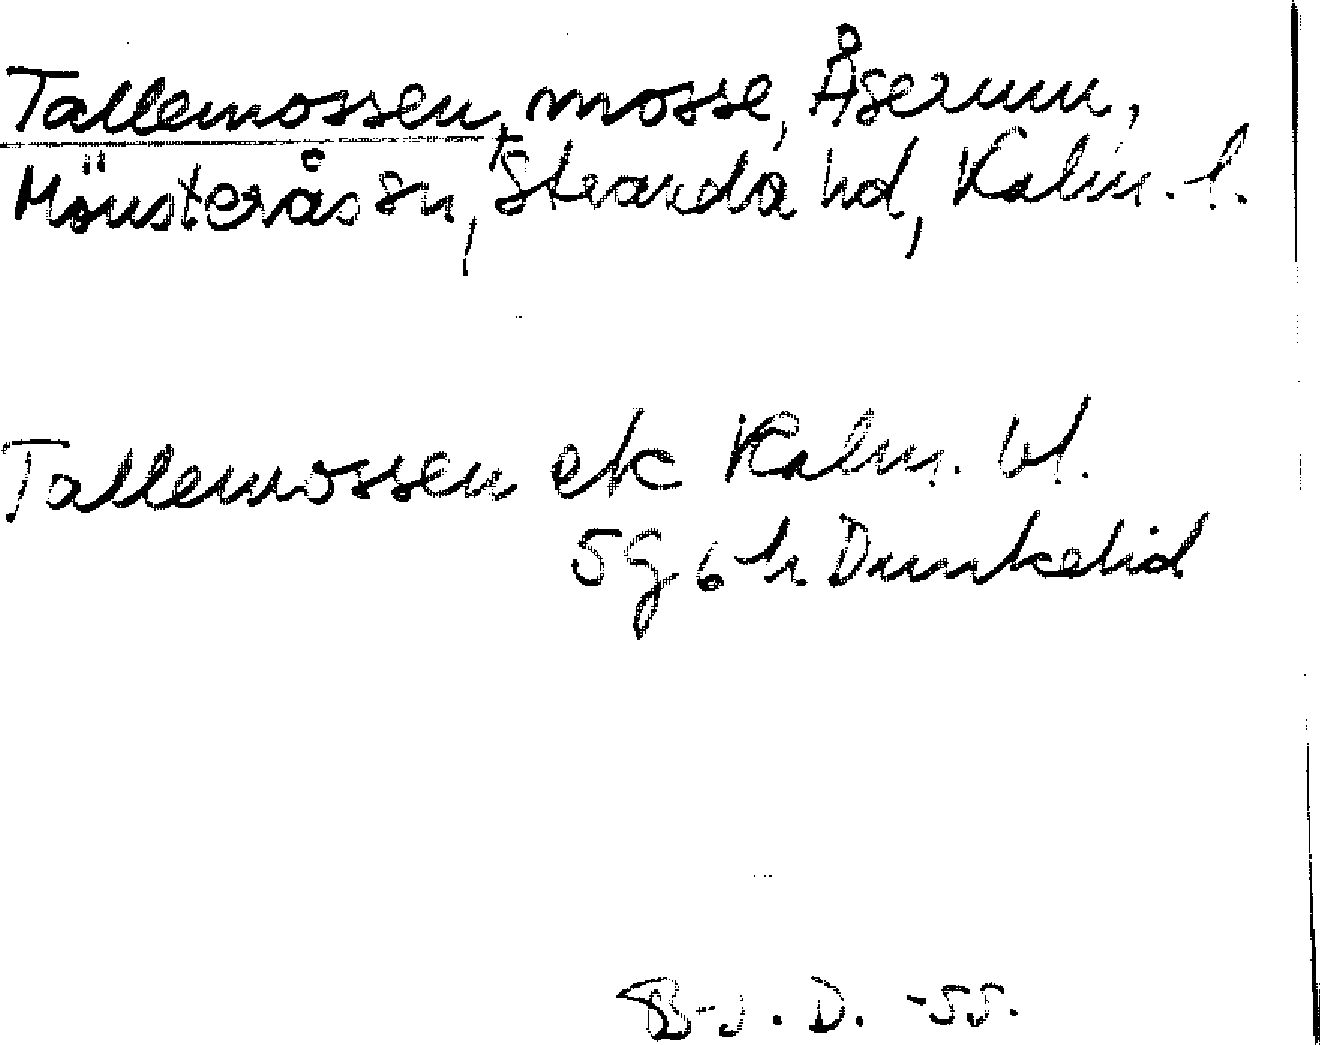 Tallemossen, mosse, Åserum,
Mönsterås sn, Stranda hd, Kalm. l.
Tallemossen ek Kalm. bl.
5g 6 h Dunkelid
B-J. D. -55.